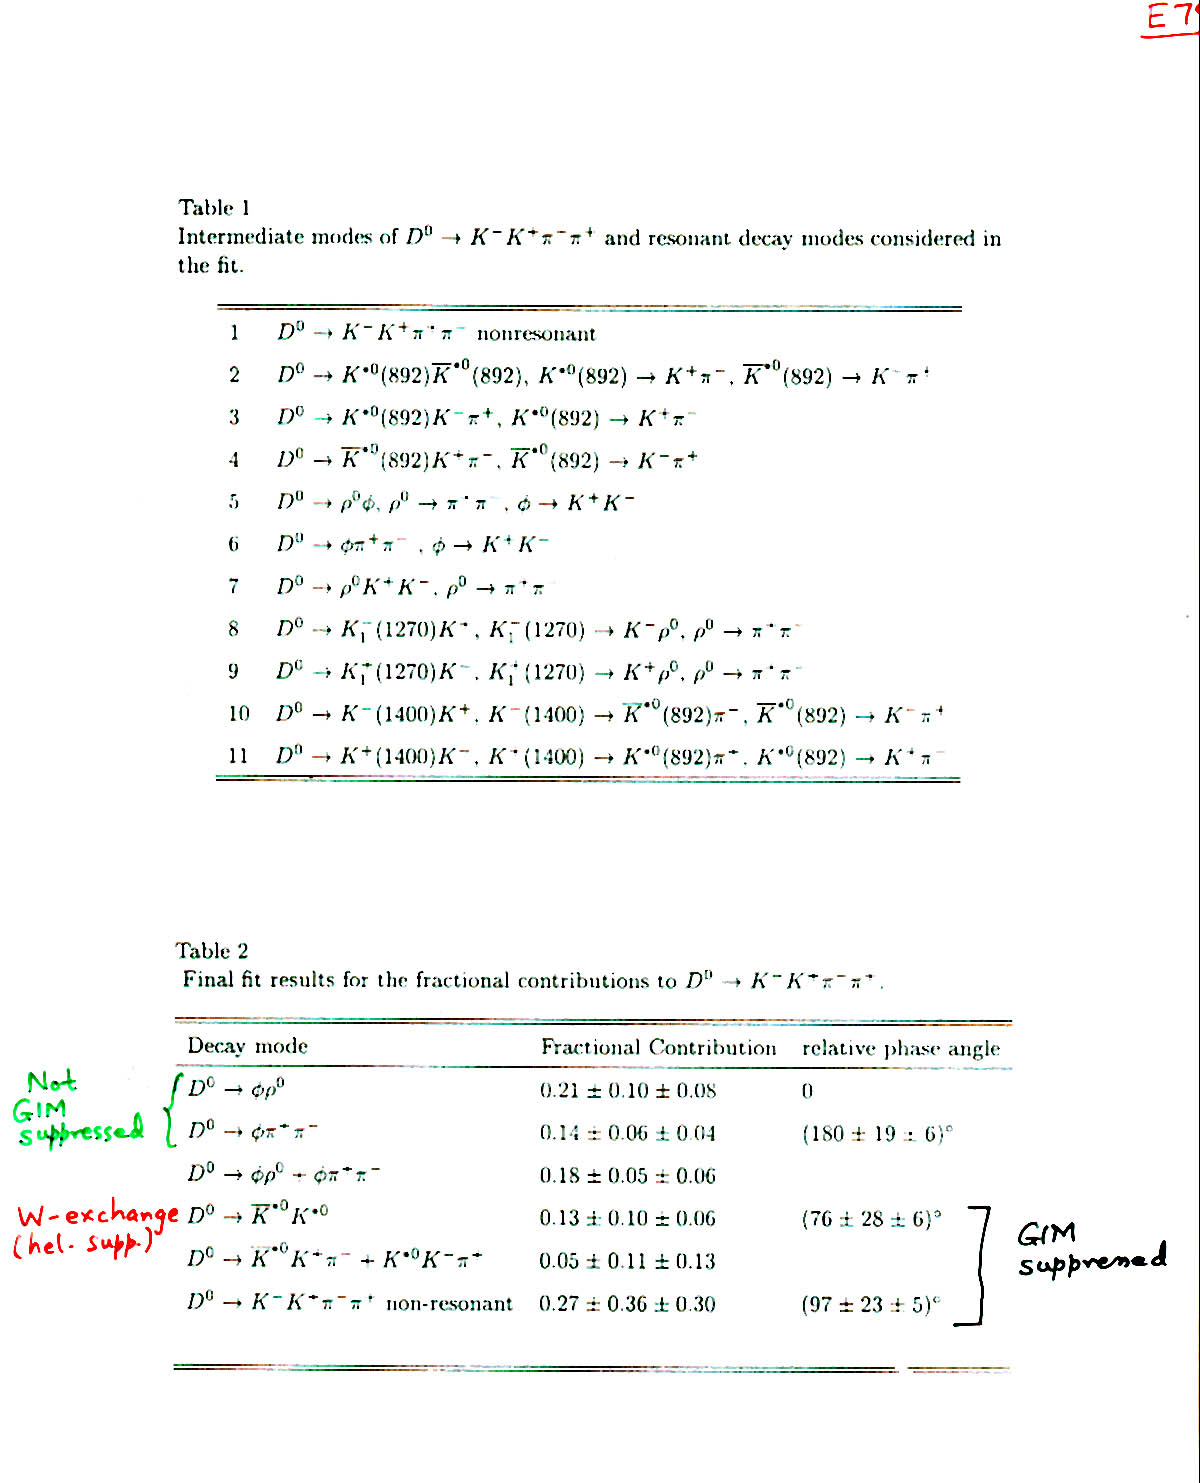 E 79
Table 1
Intermediate modes of D⁰ → K⁻K⁺π⁻π⁺ and resonant decay modes considered in
the fit.
1 D⁰ → K⁻K⁺π⁺π⁻ nonresonant
2 D⁰ → K*⁰(892)K̅*⁰(892), K*⁰(892) → K⁺π⁻, K̅*⁰(892) → K⁻π⁺
3 D⁰ → K*⁰(892)K⁻π⁺, K*⁰(892) → K⁺π⁻
4 D⁰ → K̅*⁰(892)K⁺π⁻, K̅*⁰(892) → K⁻π⁺
5 D⁰ → ρ⁰ϕ, ρ⁰ → π⁺π⁻, ϕ → K⁺K⁻
6 D⁰ → ϕπ⁺π⁻, ϕ → K⁺K⁻
7 D⁰ → ρ⁰K⁺K⁻, ρ⁰ → π⁺π⁻
8 D⁰ → K₁⁻(1270)K⁺, K₁⁻(1270) → K⁻ρ⁰, ρ⁰ → π⁺π⁻
9 D⁰ → K₁⁺(1270)K⁻, K₁⁺(1270) → K⁺ρ⁰, ρ⁰ → π⁺π⁻
10 D⁰ → K⁻(1400)K⁺, K⁻(1400) → K̅*⁰(892)π⁻, K̅*⁰(892) → K⁻π⁺
11 D⁰ → K⁺(1400)K⁻, K⁺(1400) → K*⁰(892)π⁺, K*⁰(892) → K⁺π⁻
Table 2
Final fit results for the fractional contributions to D⁰ → K⁻K⁺π⁻π⁺.
Decay mode Fractional Contribution relative phase angle
Not
GIM
suppressed
D⁰ → ϕρ⁰ 0.21 ± 0.10 ± 0.08 0
D⁰ → ϕπ⁺π⁻ 0.14 ± 0.06 ± 0.04 (180 ± 19 ± 6)°
D⁰ → ϕρ⁰ + ϕπ⁺π⁻ 0.18 ± 0.05 ± 0.06
W-exchange
(hel. supp.)
D⁰ → K̅*⁰K*⁰ 0.13 ± 0.10 ± 0.06 (76 ± 28 ± 6)°
D⁰ → K̅*⁰K⁺π⁻ + K*⁰K⁻π⁺ 0.05 ± 0.11 ± 0.13
D⁰ → K⁻K⁺π⁻π⁺ non-resonant 0.27 ± 0.36 ± 0.30 (97 ± 23 ± 5)°
GIM
suppressed